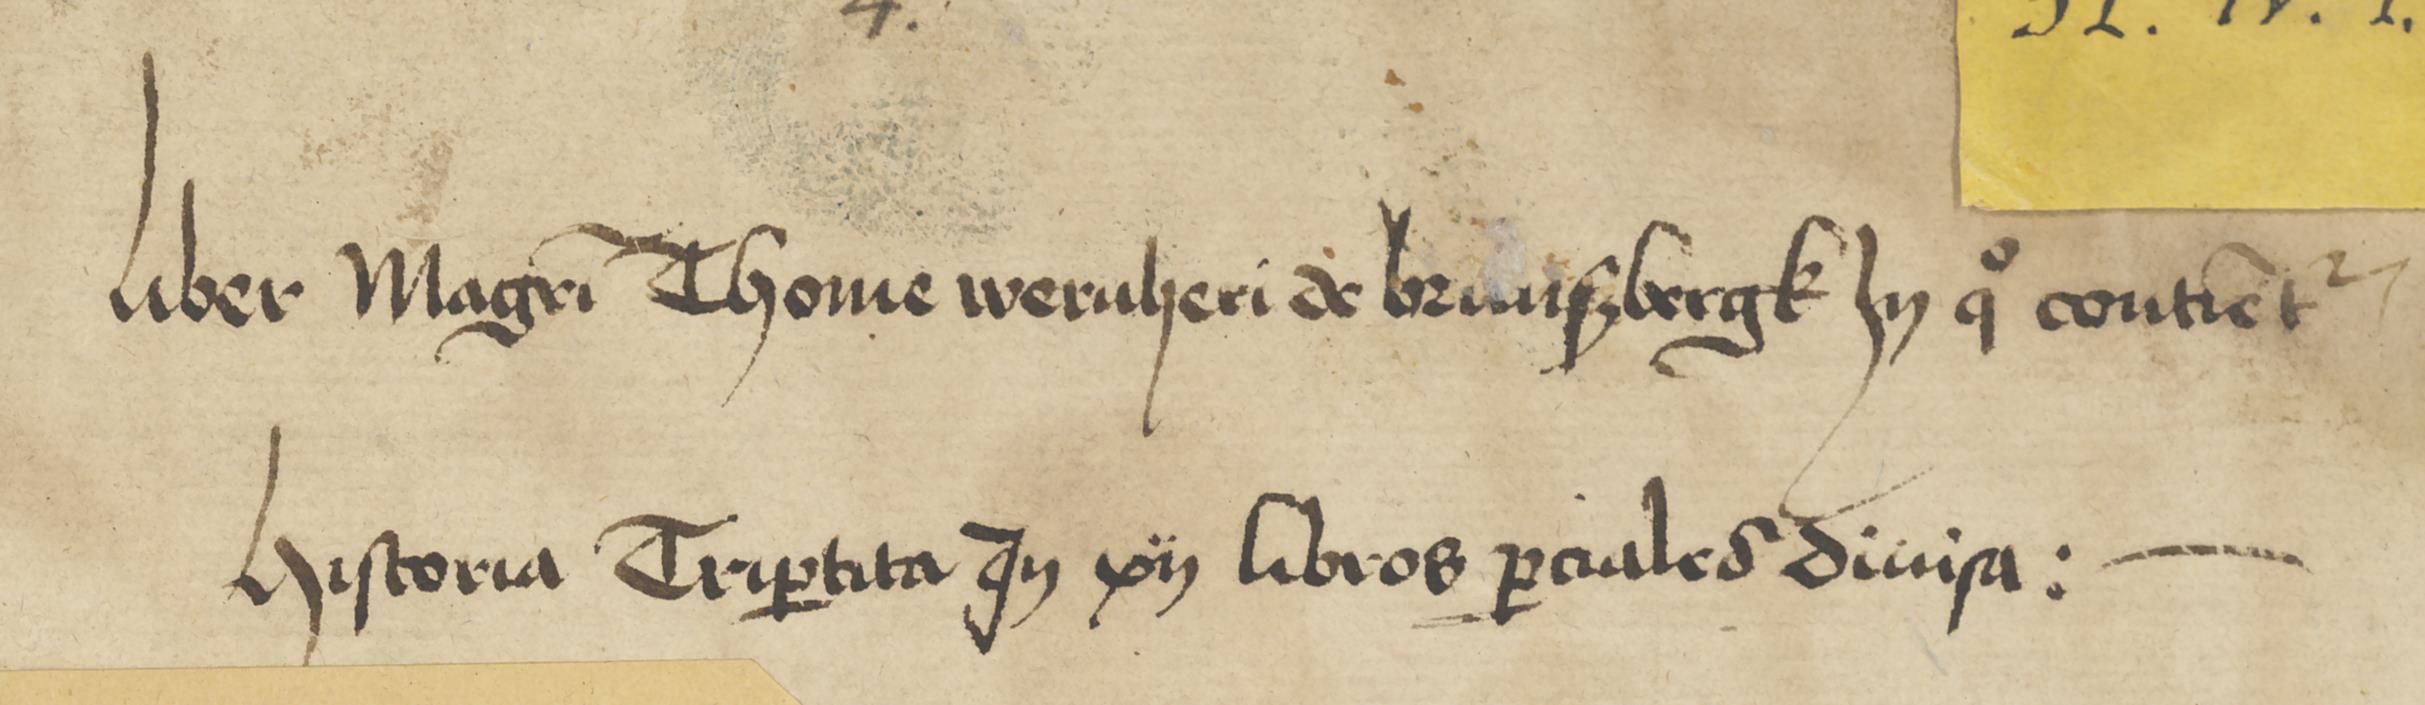 4.
Liber Magr̃i Thome wernheri de brunſzbergk In qͦ contiēt᷑
Hiſtoria Triꝑtita In xij libros ꝑciales diuiſa :—